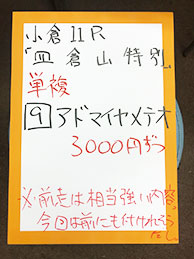 小倉11R
『皿倉山特別』
単複
9 アドマイヤメテオ
3000円ずつ
※前走は相当強い内容。
今回は前にも付けれそう
だし